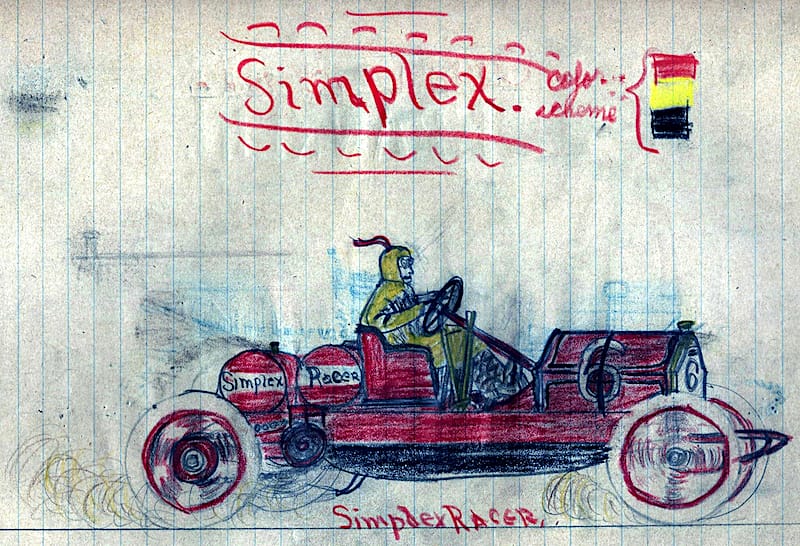 Simplex.
color
scheme
Simplex Racer
6
6
Simplex RACER.